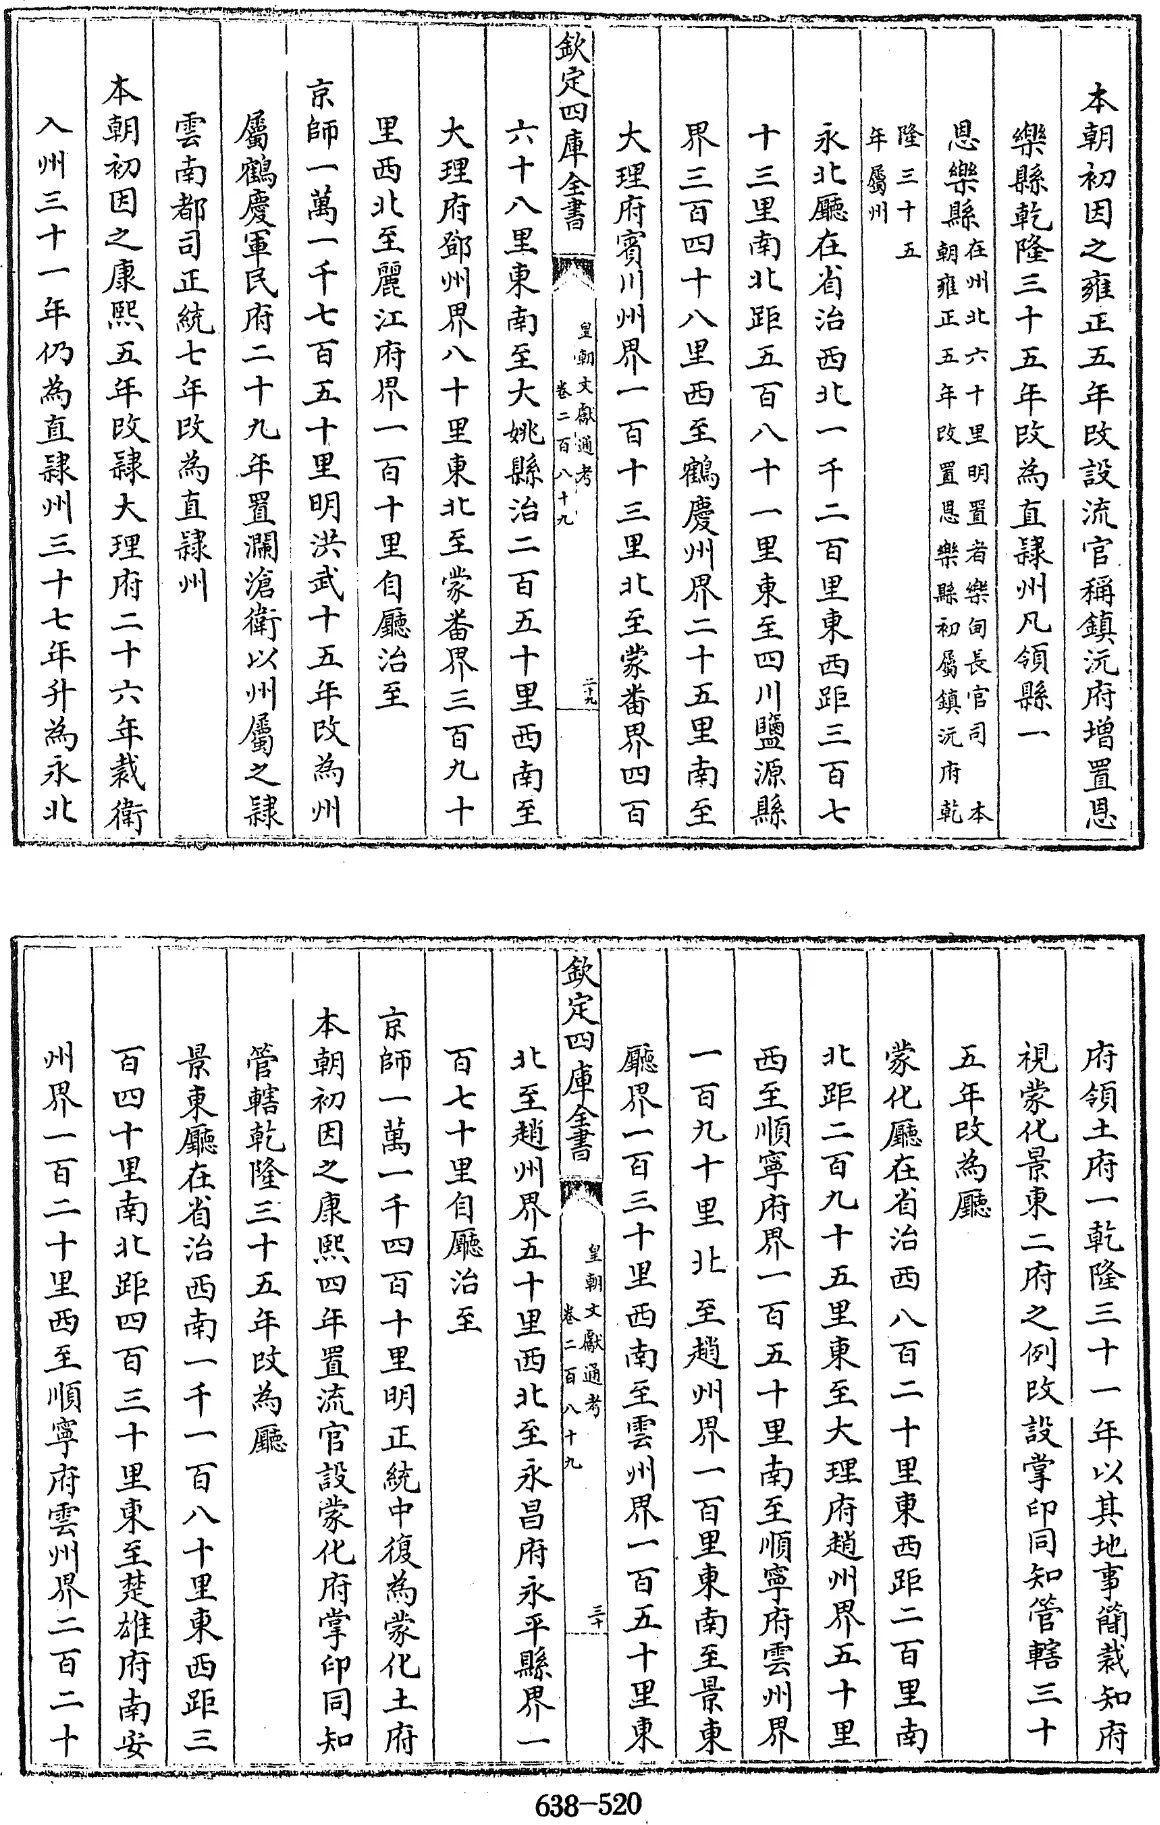 本朝初因之雍正五年改設流官稱鎮沅府增置恩
樂縣乾隆三十五年改為直隸州凡領縣一
恩樂縣在州北六十里明置者樂甸長官司本
朝雍正五年改置恩樂縣初屬鎮沅府乾
隆三十五
年屬州
永北廳在省治西北一千二百里東西距三百七
十三里南北距五百八十一里東至四川鹽源縣
界三百四十八里西至鶴慶州界二十五里南至
大理府賓川州界一百十三里北至蒙番界四百
欽定四庫全書
皇朝文獻通考
卷二百八十九
二十九
六十八里東南至大姚縣治二百五十里西南至
大理府鄧州界八十里東北至蒙番界三百九十
里西北至麗江府界一百十里自廳治至
京師一萬一千七百五十里明洪武十五年改為州
屬鶴慶軍民府二十九年置瀾滄衛以州屬之隸
雲南都司正統七年改為直隸州
本朝初因之康熙五年改隸大理府二十六年裁衛
入州三十一年仍為直隸州三十七年升為永北
府領土府一乾隆三十一年以其地事簡裁知府
視蒙化景東二府之例改設掌印同知管轄三十
五年改為廳
蒙化廳在省治西八百二十里東西距二百里南
北距二百九十五里東至大理府趙州界五十里
西至順寧府界一百五十里南至順寧府雲州界
一百九十里北至趙州界一百里東南至景東
廳界一百三十里西南至雲州界一百五十里東
欽定四庫全書
皇朝文獻通考
卷二百八十九
三十
北至趙州界五十里西北至永昌府永平縣界一
百七十里自廳治至
京師一萬一千四百十里明正統中復為蒙化土府
本朝初因之康熙四年置流官設蒙化府掌印同知
管轄乾隆三十五年改為廳
景東廳在省治西南一千一百八十里東西距三
百四十里南北距四百三十里東至楚雄府南安
州界一百二十里西至順寧府雲州界二百二十
638-520